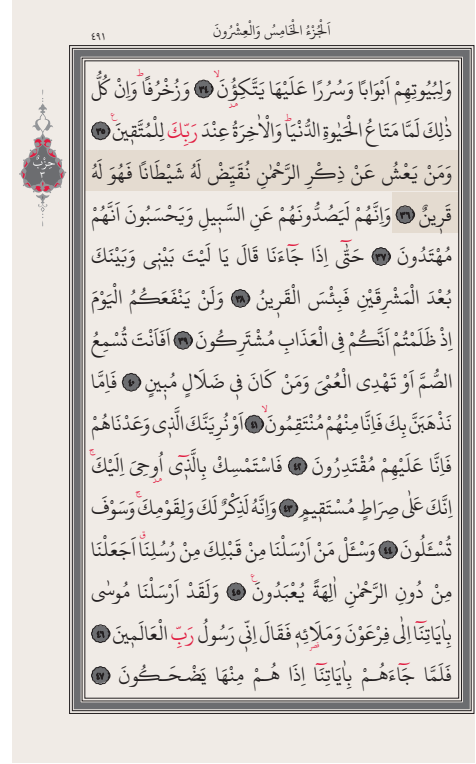 اَلْجُزْءُ الْخَامِسُ وَالْعِشْرُونَ
٤٩١
وَلِبُيُوتِهِمْ اَبْوَابًا وَسُرُرًا عَلَيْهَا يَتَّكِؤُ۫نَۙ ٣٤ وَزُخْرُفًاۜ وَاِنْ كُلُّ
ذٰلِكَ لَمَّا مَتَاعُ الْحَيٰوةِ الدُّنْيَاۜ وَالْاٰخِرَةُ عِنْدَ رَبِّكَ لِلْمُتَّقٖينَۚ ٣٥
وَمَنْ يَعْشُ عَنْ ذِكْرِ الرَّحْمٰنِ نُقَيِّضْ لَهُ شَيْطَانًا فَهُوَ لَهُ
قَرٖينٌ ٣٦ وَاِنَّهُمْ لَيَصُدُّونَهُمْ عَنِ السَّبٖيلِ وَيَحْسَبُونَ اَنَّهُمْ
مُهْتَدُونَ ٣٧ حَتّٰٓى اِذَا جَٓاءَنَا قَالَ يَا لَيْتَ بَيْنٖى وَبَيْنَكَ
بُعْدَ الْمَشْرِقَيْنِ فَبِئْسَ الْقَرٖينُ ٣٨ وَلَنْ يَنْفَعَكُمُ الْيَوْمَ
اِذْ ظَلَمْتُمْ اَنَّكُمْ فِى الْعَذَابِ مُشْتَرِكُونَ ٣٩ اَفَاَنْتَ تُسْمِعُ
الصُّمَّ اَوْ تَهْدِى الْعُمْىَ وَمَنْ كَانَ فٖى ضَلَالٍ مُبٖينٍ ٤٠ فَاِمَّا
نَذْهَبَنَّ بِكَ فَاِنَّا مِنْهُمْ مُنْتَقِمُونَۙ ٤١ اَوْ نُرِيَنَّكَ الَّذٖى وَعَدْنَاهُمْ
فَاِنَّا عَلَيْهِمْ مُقْتَدِرُونَ ٤٢ فَاسْتَمْسِكْ بِالَّذٖٓى اُو۫حِىَ اِلَيْكَۚ
اِنَّكَ عَلٰى صِرَاطٍ مُسْتَقٖيمٍ ٤٣ وَاِنَّهُ لَذِكْرٌ لَكَ وَلِقَوْمِكَۚ وَسَوْفَ
تُسْـَٔلُونَ ٤٤ وَسْـَٔلْ مَنْ اَرْسَلْنَا مِنْ قَبْلِكَ مِنْ رُسُلِنَاۗ اَجَعَلْنَا
مِنْ دُونِ الرَّحْمٰنِ اٰلِهَةً يُعْبَدُونَۚ ٤٥ وَلَقَدْ اَرْسَلْنَا مُوسٰى
بِاٰيَاتِنَٓا اِلٰى فِرْعَوْنَ وَمَلَا۬ئِهٖ فَقَالَ اِنّٖى رَسُولُ رَبِّ الْعَالَمٖينَ ٤٦
فَلَمَّا جَٓاءَهُمْ بِاٰيَاتِنَٓا اِذَا هُمْ مِنْهَا يَضْحَكُونَ ٤٧
حِزْبٌ